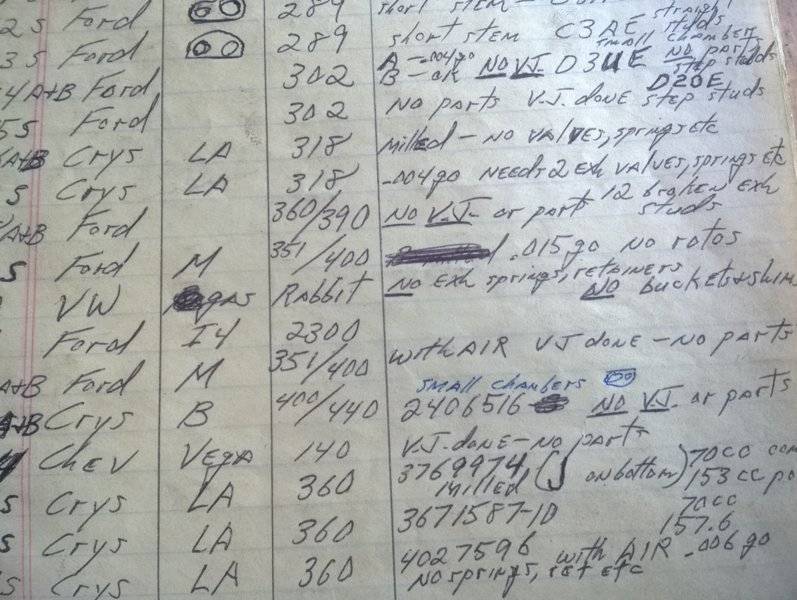 2S Ford 289 short stem - straight studs
3S Ford 289 short stem C3AE small chambers
302 A -.004go B - ok NO VJ D3UE NO parts step studs
4A+B Ford 302 NO parts V.J. done step studs D20E
5S Ford Milled - NO valves, springs etc
A+B Crys LA 318 -.004go needs 2 exh valves, springs etc
S Crys LA 318 12 broken exh studs
A+B Ford 360/390 NO V.J. or part
S Ford M 351/400 .015go NO rotos
VW gas Rabbit NO exh springs, retainers NO buckets+shim
Ford I4 2300 with AIR VJ done - NO parts
A+B Ford M 351/400 small chambers
A+B Crys B 400/440 2406516 NO VJ. or parts
4 Chev Vega 140 V.J. done - NO parts
S Crys LA 360 3769974, (J on bottom) 70cc com
Milled 153cc po
S Crys LA 360 3671587-1D 70cc 157.6
S Crys LA 360 4027596 with AIR -.006go
NO springs, ret etc